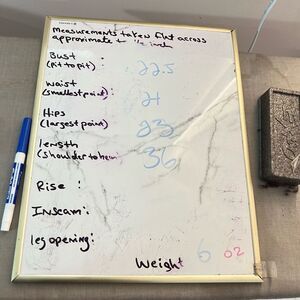 Measurements taken flat across
approximate + - 1/2 inch
Bust :
(Pit to pit) 22.5
Waist
(smallest point) : 21
Hips
(largest point) 23
length
(shoulder to hem) 36
Rise :
Inseam :
leg opening :
Weight 6 oz